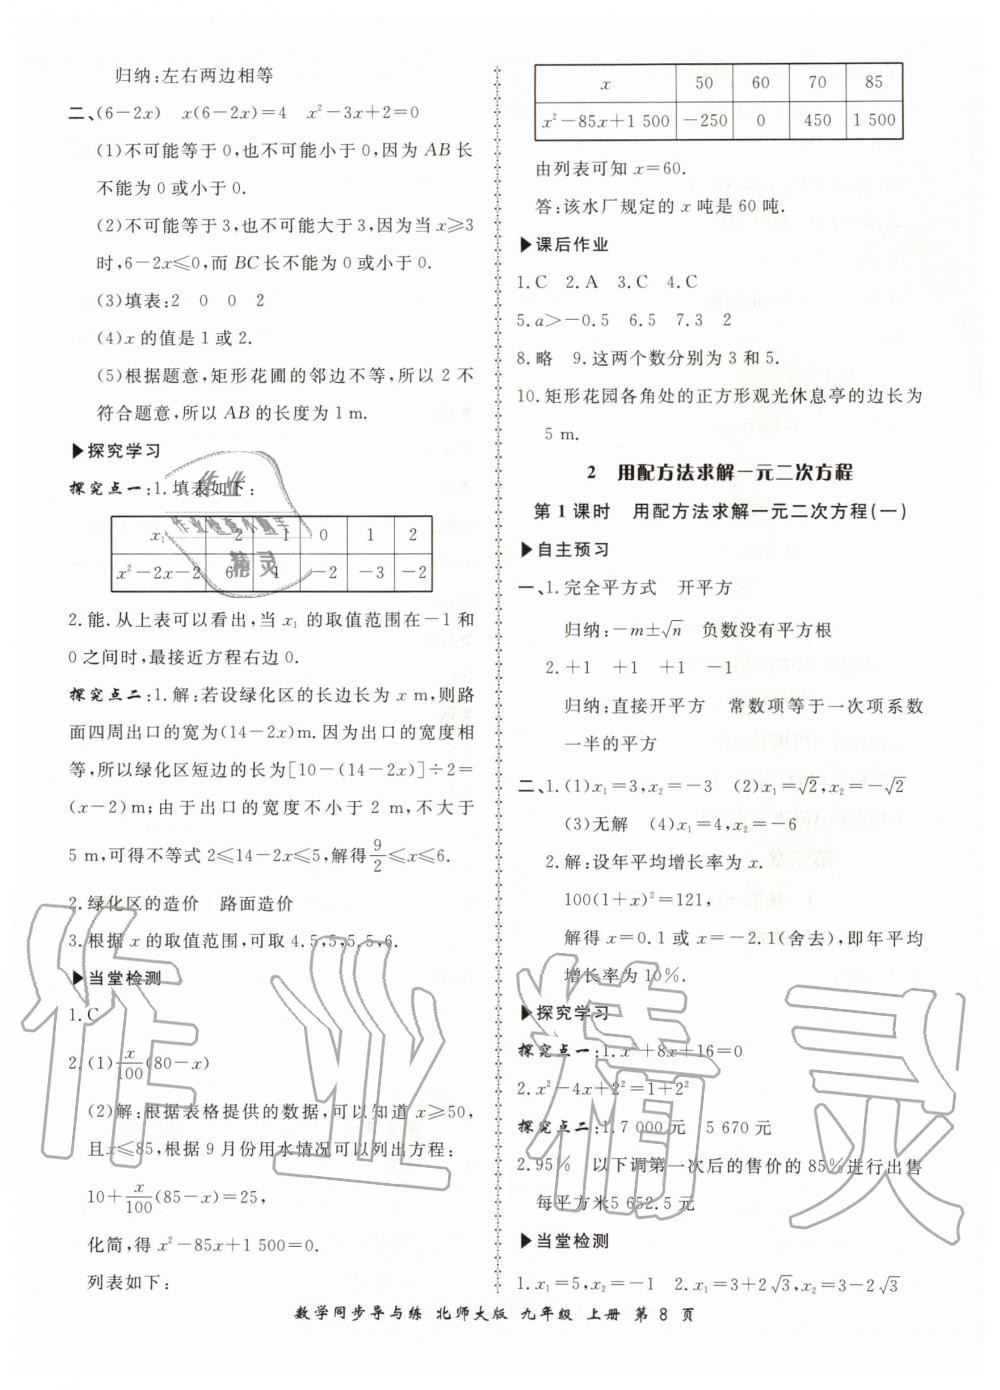 归纳:左右两边相等
二、(6-2x)　x(6-2x)=4　x²-3x+2=0
(1)不可能等于0,也不可能小于0,因为AB长
不能为0或小于0.
(2)不可能等于3,也不可能大于3,因为当x≥3
时,6-2x≤0,而BC长不能为0或小于0.
(3)填表:2　0　0　2
(4)x的值是1或2.
(5)根据题意,矩形花圃的邻边不等,所以2不
符合题意,所以AB的长度为1 m.
▶探究学习
探究点一:1.填表如下:
x₁　2　1　0　1　2
x²-2x-2　6　1　-2　-3　-2
2.能.从上表可以看出,当x₁的取值范围在-1和
0之间时,最接近方程右边0.
探究点二:1.解:若设绿化区的长边长为x m,则路
面四周出口的宽为(14-2x)m.因为出口的宽度相
等,所以绿化区短边的长为[10-(14-2x)]÷2=
(x-2)m;由于出口的宽度不小于2 m,不大于
5 m,可得不等式2≤14-2x≤5,解得9/2≤x≤6.
2.绿化区的造价　路面造价
3.根据x的取值范围,可取4.5,5,5.5,6.
▶当堂检测
1.C
2.(1)x/100(80-x)
(2)解:根据表格提供的数据,可以知道x≥50,
且x≤85,根据9月份用水情况可以列出方程:
10+x/100(85-x)=25,
化简,得x²-85x+1 500=0.
列表如下:
x　50　60　70　85
x²-85x+1 500　-250　0　450　1 500
由列表可知x=60.
答:该水厂规定的x吨是60吨.
▶课后作业
1.C　2.A　3.C　4.C
5.a>-0.5　6.5　7.3　2
8.略　9.这两个数分别为3和5.
10.矩形花园各角处的正方形观光休息亭的边长为
5 m.
2　用配方法求解一元二次方程
第1课时　用配方法求解一元二次方程(一)
▶自主预习
一、1.完全平方式　开平方
归纳:-m±√n　负数没有平方根
2.+1　+1　+1　-1
归纳:直接开平方　常数项等于一次项系数
一半的平方
二、1.(1)x₁=3,x₂=-3　(2)x₁=√2,x₂=-√2
(3)无解　(4)x₁=4,x₂=-6
2.解:设年平均增长率为x.
100(1+x)²=121,
解得x=0.1或x=-2.1(舍去),即年平均
增长率为10%.
▶探究学习
探究点一:1.x²+8x+16=0
2.x²-4x+2²=1+2²
探究点二:1.7 000元　5 670元
2.95%　以下调第一次后的售价的85%进行出售
每平方米5 652.5元
▶当堂检测
1.x₁=5,x₂=-1　2.x₁=3+2√3,x₂=3-2√3
数学同步导与练　北师大版　九年级　上册　第8页
作业精灵
作业
作业检查小助手
精灵